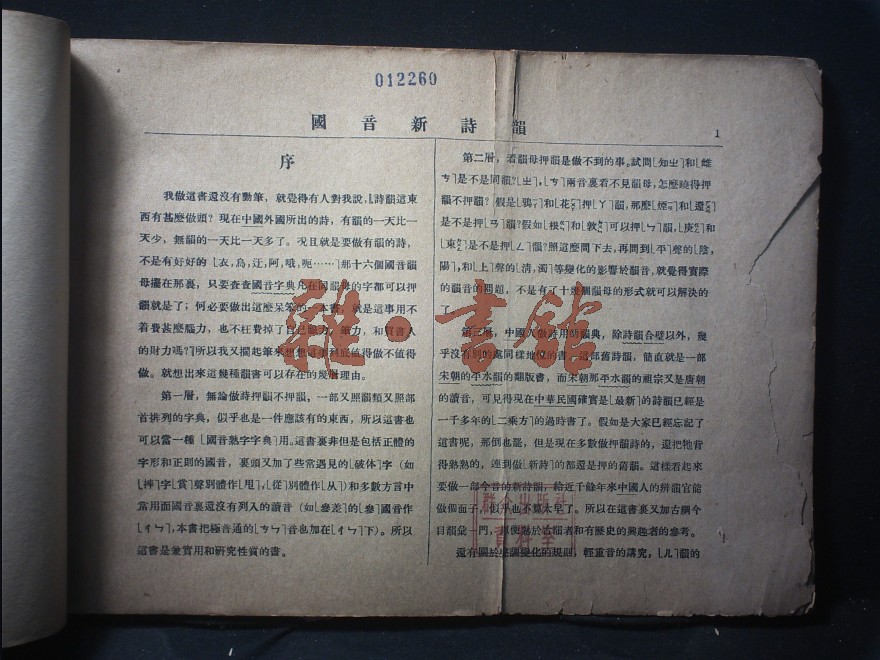 012260
國音新詩韻
1
序
我做這書還沒有動筆，就覺得有人對我說，⌊詩韻這東
西有甚麼做頭？現在中國外國所出的詩，有韻的一天比一
天少，無韻的一天比一天多了。況且就是要做有韻的詩，
不是有好好的⌊衣，烏，迂，阿，哦，呃……⌉那十六個國音韻
母擺在那裏，只要查查國音字典凡在同韻母的字都可以押
韻就是了；何必要做出這麼呆笨的一本書，就是這事用不
着費甚麼腦力，也不枉費掉了自己眼力，筆力，和買書人
的財力嗎？⌉所以我又擱起筆來想想
到底值得做不值得
做。就想出來這幾種韻書可以存在的幾層理由。
第一層，無論做詩押韻不押韻，一部又照韻類又照部
首排列的字典，似乎也是一件應該有的東西，所以這書也
可以當一種⌊國音熟字字典⌉用。這書裏非但是包括正體的
字形和正則的國音，裏頭又加了些常遇見的⌊破体⌉字（如
⌊捽⌉字⌊賞⌉聲別體作⌊甩⌉，⌊從⌉別體作⌊从⌉）和多數方言中
常用而國音裏還沒有列入的讀音（如⌊參差⌉的⌊參⌉國音作
⌊ㄔㄣ⌉，本書把極音通的⌊ㄘㄣ⌉音也加在⌊ㄔㄣ⌉下）。所以
這書是兼實用和研究性質的書。
第二層，看韻母押韻是做不到的事。試問⌊知ㄓ⌉和⌊雌
ㄘ⌉是不是同韻？⌊ㄓ⌉，⌊ㄘ⌉兩音裏看不見韻母，怎麼曉得押
韻不押韻？假是⌊鴉⌉和⌊花⌉押⌊ㄚ⌉韻，那麼⌊煙⌉和⌊還⌉
是不是押⌊ㄢ⌉韻？假如⌊根⌉和⌊敦⌉可以押⌊ㄣ⌉韻，⌊庚⌉和
⌊東⌉是不是押⌊ㄥ⌉韻？照這麼問下去，再問到⌊平⌉聲的⌊陰，
陽⌉，和⌊上⌉聲的⌊清，濁⌉等變化的影響於韻音，就覺得實際
的韻音的問題，不是有了十幾個韻母的形式就可以解決的
了。
第三層，中國人做詩用的韻典，除詩韻合璧以外，幾
乎沒有別的處同樣地位的書，這部舊詩韻，簡直就是一部
宋朝的平水韻的翻版書，而宋朝那平水韻的祖宗又是唐朝
的讀音，可見得現在中華民國確實是⌊最新⌉的詩韻已經是
一千多年的⌊二乘方⌉的過時書了。假如是大家已經忘記了
這書呢，那倒也罷，但是現在多數做押韻詩的，還把牠背
得熟熟的，連到做⌊新詩⌉的都還是押的舊韻。這樣看起來
要做一部今音的新詩韻，給近千餘年來中國人的辨韻官能
做個面子，似乎也不算太早了。所以在這書裏又加古綱今
目韻彙一門，以便熟於古韻者和有歷史的興趣者的參考。
還有關於聲調變化的規則，輕重音的講究，⌊ㄦ⌉韻的
群众出版社
資料室
雜·書館